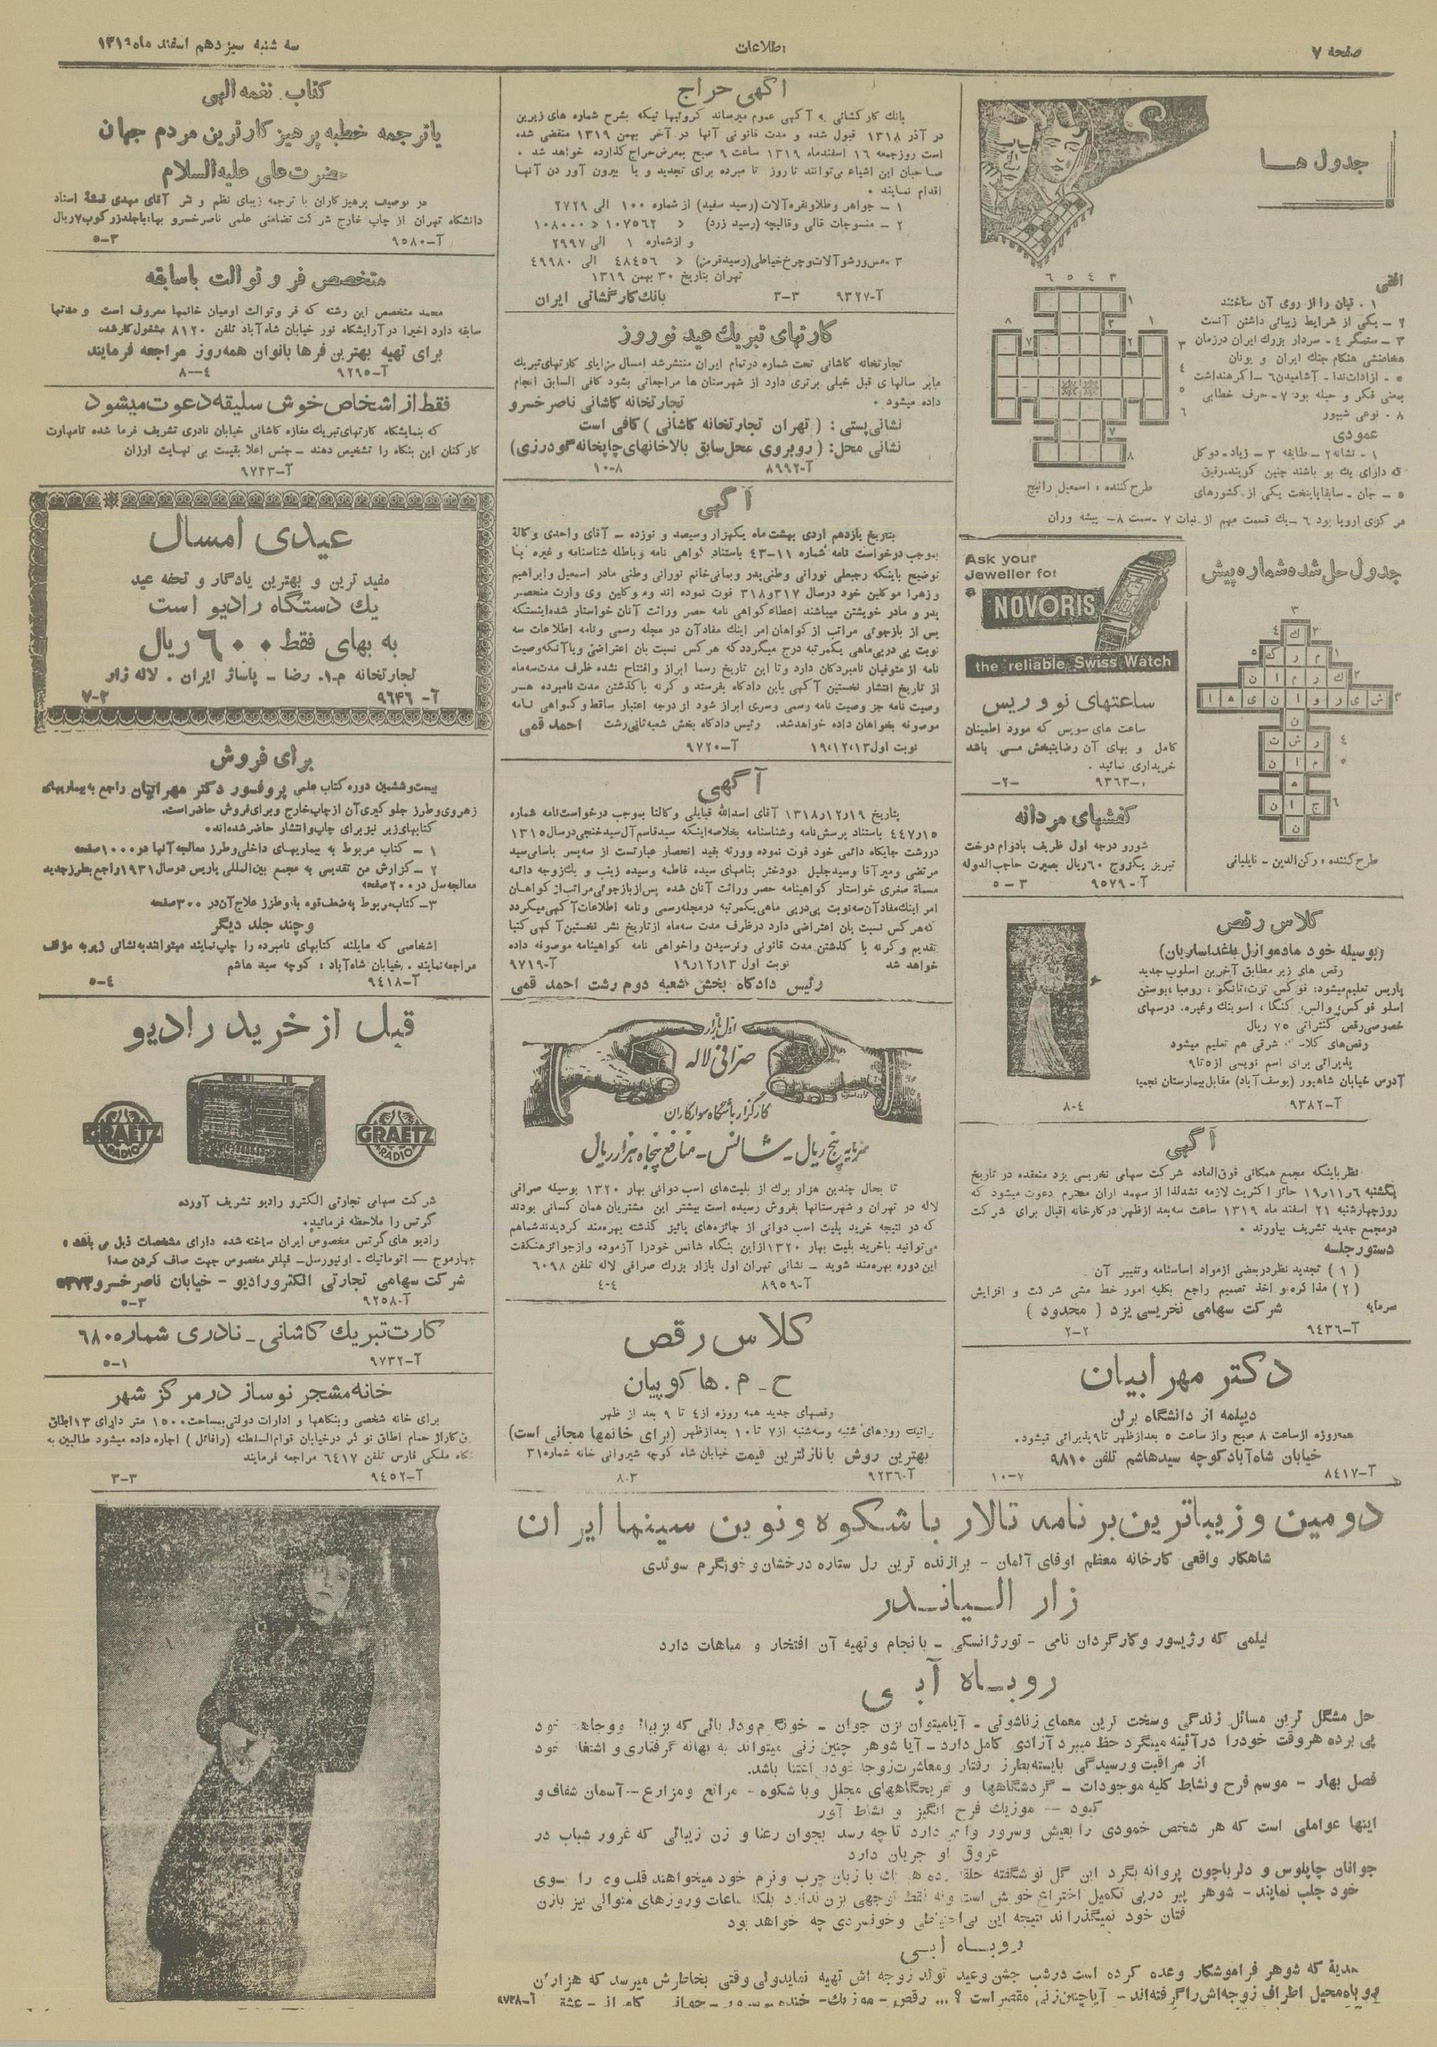 صفحه ۷
اطلاعات
سه شنبه سیزدهم اسفند ماه ۱۳۱۹
جدول ها
۳ ٤ ٥ ٦
افقی
۱ - تپان را از روی آن ساختند
۲ - یکی از شرایط زیبائی داشتن آنست
۳ - ستمگر ٤ - سردار بزرگ ایران در زمان
هخامنشی هنگام جنگ ایران و یونان
٥ - از ادات ندا - آشامیدن ٦ - اگر هنداشت
یعنی فکر و حیله بود ۷ - حرف خطابی
۸ - نوعی شیپور
عمودی
۱ - نشانه ۲ - طایفه ۳ - زیاد - دو گل
که دارای یک بو باشند چنین گویند - رفیق
٥ - جان - سابقا پایتخت یکی از کشورهای
مرکزی اروپا بود ٦ - یک قسمت مهم از نبات ۷ - سمت ۸ - پیشه وران
طرح کننده : اسمعیل رائیج
جدول حل شده شماره پیش
طرح کننده : رکن الدین - نایلیانی
Ask your
Jeweller for
a
NOVORIS
the reliable Swiss Watch
ساعتهای نووریس
ساعت های سویس که مورد اطمینان
کامل و بهای آن رضایتبخش می باشد
خریداری نمائید .
۹۳۶۳ -۲-
کفشهای مردانه
شورو درجه اول ظریف بادوام دوخت
تبریز یکزوج ۶۰ ریال بصیرت حاجب الدوله
آ-۹۵۷۹ ۳-۵
کلاس رقص
(بوسیله خود مادموازل یلغداساریان)
رقص های زیر مطابق آخرین اسلوب جدید
پاریس تعلیم میشود: فوکس تروت، تانگو ، رومبا ، بوستن
اسلو فوکس، والس، کنگا، اسوینگ وغیره. درسهای
خصوصی رقص کنتراتی ۷۵ ریال
رقص های کلاسیک شرقی هم تعلیم میشود
پذیرائی برای اسم نویسی از ۵ تا ۹
آدرس خیابان شاهپور (یوسف آباد) مقابل بیمارستان نجمیه
آ-۹۳۸۲ ۸-٤
آگهی
نظر باینکه مجمع همگانی فوق العاده شرکت سهامی نخریسی یزد منعقده در تاریخ
یکشنبه ۱۹ر۱۱ر۶ حائز اکثریت لازمه نشد لذا از سهمداران محترم دعوت میشود که
روز چهارشنبه ۲۱ اسفند ماه ۱۳۱۹ ساعت سه بعد از ظهر در کارخانه اقبال برای شرکت
در مجمع جدید تشریف بیاورند .
دستور جلسه
(۱) تجدید نظر در بعضی از مواد اساسنامه و تغییر آن
(۲) مذاکره و اخذ تصمیم راجع بکلیه امور خط مشی شرکت و افزایش
سرمایه شرکت سهامی نخریسی یزد ( محدود )
آ-۹٤۳۶ ۲-۲
دکتر مهرابیان
دیپلمه از دانشگاه برلن
همه روزه از ساعت ۸ صبح و از ساعت ۵ بعد از ظهر تا ۹ پذیرائی میشود.
خیابان شاه آباد کوچه سیدهاشم تلفن ۹۸۱۰
آ-۸٤۱۷ ۷-۱۰
آگهی حراج
بانک کارگشائی به آگهی عموم میرساند گروئیها ئیکه بشرح شماره های زیرین
در آذر ۱۳۱۸ قبول شده و مدت قانونی آنها در آخر بهمن ۱۳۱۹ منقضی شده
است روز جمعه ۱۶ اسفند ماه ۱۳۱۹ ساعت ۹ صبح بمعرض حراج گذارده خواهد شد .
صاحبان این اشیاء می توانند تا روز نامبرده برای تجدید و یا بیرون آوردن آنها
اقدام نمایند .
۱ - جواهر و طلا و نقره آلات (رسید سفید) از شماره ۱۰۰ الی ۲۷۲۹
۲ - منسوجات قالی و قالیچه (رسید زرد) » ۱۰۷۵۶۲ » ۱۰۸۰۰۰
و از شماره ۱ الی ۲۹۹۷
۳ - مس و ورشو آلات و چرخ خیاطی (رسید قرمز) » ٤۸٤۵۶ الی ٤۹۹۸۰
تهران بتاریخ ۳۰ بهمن ۱۳۱۹
آ-۹۳۲۷ ۳-۳ بانک کارگشائی ایران
کارتهای تبریک عید نوروز
تجارتخانه کاشانی تحت شماره در تمام ایران منتشر شد امسال مزایای کارتهای تبریک
مابر سالهای قبل خیلی برتری دارد از شهرستان ها مراجعاتی بشود کافی السابق انجام
داده میشود . تجارتخانه کاشانی ناصر خسرو
نشانی پستی : ( تهران تجارتخانه کاشانی ) کافی است
نشانی محل: (روبروی محل سابق بالاخانهای چاپخانه گودرزی)
آ-۸۹۹۲ ۸-۱۰
آگهی
بتاریخ یازدهم اردی بهشت ماه یکهزار و سیصد و نوزده - آقای واحدی وکالة
بموجب درخواست نامه شماره ۱۱-٤۳ باستناد گواهی نامه و باطله شناسنامه و غیره با
توضیح باینکه رجبعلی نورانی وطنی پدر و بمانی خانم نورانی وطنی مادر اسمعیل و ابراهیم
و زهرا موکلین خود در سال ۳۱۷ و ۳۱۸ فوت نموده اند و موکلین وی وارث منحصر
پدر و مادر خویشتن میباشند اعطاء گواهی نامه حصر وراثت آنان خواستار شده اینستکه
پس از بازجوئی مراتب از گواهان امر اینک مفاد آن در مجله رسمی و نامه اطلاعات سه
نوبت پی در پی ماهی یکمرتبه درج میگردد که هر کس نسبت بان اعتراضی و یا آنکه وصیت
نامه از متوفیان نامبردگان دارد و تا این تاریخ رسما ابراز و افتتاح نشده ظرف مدت سه ماه
از تاریخ انتشار نخستین آگهی باین دادگاه بفرستد و گرنه با گذشتن مدت نامبرده هر
وصیت نامه جز وصیت نامه رسمی و سری ابراز شود از درجه اعتبار ساقط و گواهی نامه
موصوفه بخواهان داده خواهد شد. رئیس دادگاه بخش شعبه ثانی رشت احمد قمی
نوبت اول ۱۹،۱۲،۱۳ آ-۹۷۲۰
آگهی
بتاریخ ۱۹ر۱۲ر۱۳۱۸ آقای اسدالله قبایلی وکالتا بموجب درخواست نامه شماره
۱۵ر٤٤۷ باستناد پرسش نامه و شناسنامه بخلاصه اینکه سید قاسم آل سید خنجی در سال ۱۳۱۵
در رشت جایگاه دائمی خود فوت نموده و ورثه بقید انحصار عبارتست از سه پسر باسامی سید
مرتضی و میر آقا و سید جلیل دو دختر بنامهای سیده فاطمه و سیده زینب و یک زوجه دائمه
مسماة صغری خواستار گواهینامه حصر وراثت آنان شده پس از بازجوئی مراتب از گواهان
امر اینک مفاد آن سه نوبت پی در پی ماهی یکمرتبه در مجله رسمی و نامه اطلاعات آگهی میگردد
که هر کس نسبت بان اعتراضی دارد در ظرف مدت سه ماه از تاریخ نشر نخستین آگهی کتبا
تقدیم و گرنه با گذشتن مدت قانونی و نرسیدن واخواهی نامه گواهینامه موصوفه داده
خواهد شد نوبت اول ۱۳ر۱۲ر۱۹ آ-۹۷۱۹
رئیس دادگاه بخش شعبه دوم رشت احمد قمی
اول بازار
صرافی لاله
کارگزار باشگاه سوارکاران
سرمایه پنج ریال - شانس - منافع پنجاه هزار ریال
تا بحال چندین هزار برگ از بلیت های اسب دوانی بهار ۱۳۲۰ بوسیله صرافی
لاله در تهران و شهرستانها بفروش رسیده است بیشتر این مشتریان همان کسانی بودند
که در نتیجه خرید بلیت اسب دوانی از جائزه های پائیز گذشته بهره مند گردیدند شما هم
می توانید با خرید بلیت بهار ۱۳۲۰ از این بنگاه شانس خود را آزموده و از جوائز هنگفت
این دوره بهره مند شوید - نشانی تهران اول بازار بزرگ صرافی لاله تلفن ۶۰۹۸
آ-۸۹۵۹ ٤-٤
کلاس رقص
ح - م . هاکوپیان
رقصهای جدید همه روزه از ٤ تا ۹ بعد از ظهر
روزهای شنبه و سه شنبه از ۷ تا ۱۰ بعد از ظهر (برای خانمها مجانی است)
بهترین روش با نازلترین قیمت خیابان شاه کوچه شیروانی خانه شماره ۳۱
آ-۹۲۳۶ ۳-۸
کتاب نغمه الهی
یا ترجمه خطبه پرهیز کارترین مردم جهان
حضرت علی علیه السلام
در توصیف پرهیز کاران با ترجمه زیبای نظم و نثر آقای مهدی قمشه استاد
دانشگاه تهران از چاپ خارج شرکت تضامنی علمی ناصر خسرو بها: با جلد زرکوب ۷ ریال
آ-۹۵۸۰ ۳-۵
متخصص فر و توالت باسابقه
محمد متخصص این رشته که فر و توالت اومیان خانمها معروف است و مدتها
سابقه دارد اخیرا در آرایشگاه نور خیابان شاه آباد تلفن ۸۱۲۰ مشغول کار شده
برای تهیه بهترین فرها بانوان همه روز مراجعه فرمایند
آ-۹۲۹۵ ٤-۸
فقط از اشخاص خوش سلیقه دعوت میشود
که بنمایشگاه کارتهای تبریک مغازه کاشانی خیابان نادری تشریف فرما شده تا مهارت
کارکنان این بنگاه را تشخیص دهند - جنس اعلا بقیمت بی نهایت ارزان
آ-۹۷۳۳
عیدی امسال
مفید ترین و بهترین یادگار و تحفه عید
یک دستگاه رادیو است
به بهای فقط ۶۰۰ ریال
تجارتخانه م.ا. رضا - پاساژ ایران . لاله زار
آ-۹۶٤۶ ۲-۷
برای فروش
بیست و ششمین دوره کتاب علمی پروفسور دکتر مهرانیان راجع به بیماریهای
زهروی و طرز جلوگیری آن از چاپ خارج و برای فروش حاضر است.
کتابهای زیر نیز برای چاپ و انتشار حاضر شده اند :
۱ - کتاب مربوط به بیماریهای داخلی و طرز معالجه آنها در ۱۰۰۰ صفحه
۲ - گزارش من تقدیمی به مجمع بین المللی پاریس در سال ۱۹۳۱ راجع بطرز جدید
معالجه سل در ۲۰۰ صفحه
۳ - کتاب مربوط به ضعف قوه باء و طرز علاج آن در ۳۰۰ صفحه
و چند جلد دیگر
اشخاصی که مایلند کتابهای نامبرده را چاپ نمایند میتوانند به نشانی زیر به مؤلف
مراجعه نمایند . خیابان شاه آباد : کوچه سید هاشم
آ-۹٤۱۸ ٤-۵
قبل از خرید رادیو
GRAETZ
RADIO
GRAETZ
RADIO
شرکت سهامی تجارتی الکترو رادیو تشریف آورده
گرتس را ملاحظه فرمائید.
رادیو های گرتس مخصوص ایران ساخته شده دارای مشخصات ذیل می باشد :
چهار موج - اتوماتیک - اونیورسل - فیلتر مخصوص جهت صاف کردن صدا
شرکت سهامی تجارتی الکترو رادیو - خیابان ناصر خسرو
آ-۹۲۵۸ ۳-۵
کارت تبریک کاشانی - نادری شماره ۶۸۰
آ-۹۷۳۲ ۱-۵
خانه مشجر نوساز در مرکز شهر
برای خانه شخصی و بنگاهها و ادارات دولتی بمساحت ۱۵۰۰ متر دارای ۱۳ اطاق
گاراژ حمام اطاق نوکر در خیابان قوام السلطنه (رافائل) اجاره داده میشود طالبین به
بنگاه ملکی فارس تلفن ۶٤۱۷ مراجعه فرمایند
آ-۹٤۵۲ ۳-۳
دومین و زیباترین برنامه تالار با شکوه و نوین سینما ایران
شاهکار واقعی کارخانه معظم اوفای آلمان - برازنده ترین رل ستاره درخشان و خونگرم سوئدی
زار السیاندر
فیلمی که رژیسور و کارگردان نامی - تورژانسکی - با نجام و تهیه آن افتخار و مباهات دارد
روباه آبی
حل مشکل ترین مسائل زندگی و سخت ترین معمای زناشوئی - آیا میتوان بزن جوان - خونگرم و دلربائی که بزیبائی و وجاهت خود
پی برده هر وقت خود را در آئینه مینگرد حظ میبرد آزادی کامل دارد - آیا شوهر چنین زنی میتواند به بهانه گرفتاری و اشتغال خود
از مراقبت و رسیدگی بایسته بطرز رفتار و معاشرت زوجه خود بی اعتنا باشد.
فصل بهار - موسم فرح و نشاط کلیه موجودات - گردشگاهها و تفریحگاههای مجلل و با شکوه - مراتع و مزارع - آسمان شفاف و
کبود - موزیک فرح انگیز و نشاط آور
اینها عواملی است که هر شخص خمودی را بعیش و سرور وا می دارد تا چه رسد بجوان رعنا و زن زیبائی که غرور شباب در
عروق او جریان دارد
جوانان چاپلوس و دلربا چون پروانه بگرد این گل نو شگفته حلقه زده هر یک با زبان چرب و نرم خود میخواهند قلب وی را بسوی
خود جلب نمایند - شوهر پیر در پی تکمیل اختراع خویش است و نه فقط توجهی بزن ندارد بلکه ساعات و روزهای متوالی نیز با زن
فتان خود نمیگذراند نتیجه این بی احتیاطی و خونسردی چه خواهد بود
روباه آبی
هدیه که شوهر فراموشکار وعده کرده است در شب جشن و عید تولد زوجه اش تهیه نماید ولی وقتی بخاطرش میرسد که هزاران
روباه محیل اطراف زوجه اش را گرفته اند - آیا چنین زنی مقصر است ؟... رقص - موزیک - خنده - سرور - جوانی - عشق آ-۹۷۳۸